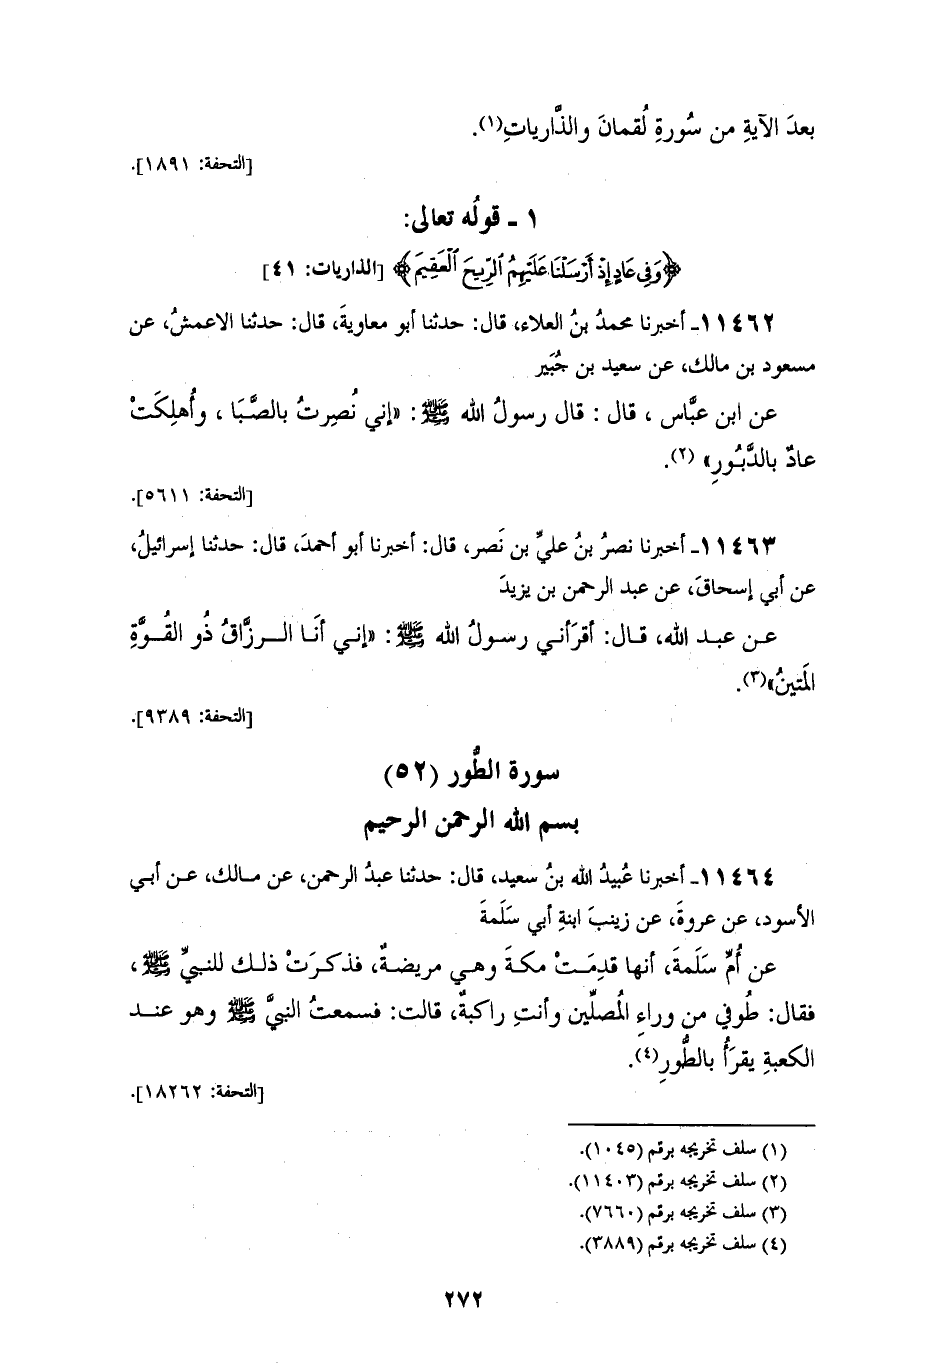 بعدَ الآيةِ من سُورةِ لُقمانَ والذَّارياتِ(١).
[التحفة: ١٨٩١].
١ ـ قولُه تعالى:
﴿وَفِي عَادٍ إِذْ أَرْسَلْنَا عَلَيْهِمُ ٱلرِّيحَ ٱلْعَقِيمَ﴾ [الذاريات: ٤١]
١١٤٦٢ـ أخبرنا محمدُ بنُ العلاء، قال: حدثنا أبو معاويةَ، قال: حدثنا الاعمشُ، عن
مسعود بن مالك، عن سعيد بن جُبَير
عن ابن عبَّاس ، قال : قال رسولُ الله ﷺ : «إني نُصِرتُ بالصَّبَا ، وأُهلِكَتْ
عادٌ بالدَّبُورِ» (٢).
[التحفة: ٥٦١١].
١١٤٦٣ـ أخبرنا نصرُ بنُ عليِّ بن نَصر، قال: أخبرنا أبو أحمدَ، قال: حدثنا إسرائيلُ،
عن أبي إسحاقَ، عن عبد الرحمن بن يزيدَ
عن عبد الله، قال: أقرَأني رسولُ الله ﷺ : «إني أنَا الرزَّاقُ ذُو القُوَّةِ
المَتينُ»(٣).
[التحفة: ٩٣٨٩].
سورة الطُّور (٥٢)
بسم الله الرحمن الرحيم
١١٤٦٤ـ أخبرنا عُبيدُ الله بنُ سعيد، قال: حدثنا عبدُ الرحمن، عن مالك، عن أبي
الأسود، عن عروةَ، عن زينبَ ابنةِ أبي سَلَمةَ
عن أُمِّ سَلَمةَ، أنها قدِمَتْ مكةَ وهي مريضةٌ، فذكرَتْ ذلك للنبيِّ ﷺ ،
فقال: طُوفي من وراءِ المُصلِّين وأنتِ راكبةٌ، قالت: فسمعتُ النبيَّ ﷺ وهو عند
الكعبةِ يقرَأُ بالطُّورِ(٤).
[التحفة: ١٨٢٦٢].
(١) سلف تخريجه برقم (١٠٤٥).
(٢) سلف تخريجه برقم (١١٤٠٣).
(٣) سلف تخريجه برقم (٧٦٦٠).
(٤) سلف تخريجه برقم (٣٨٨٩).
٢٧٢